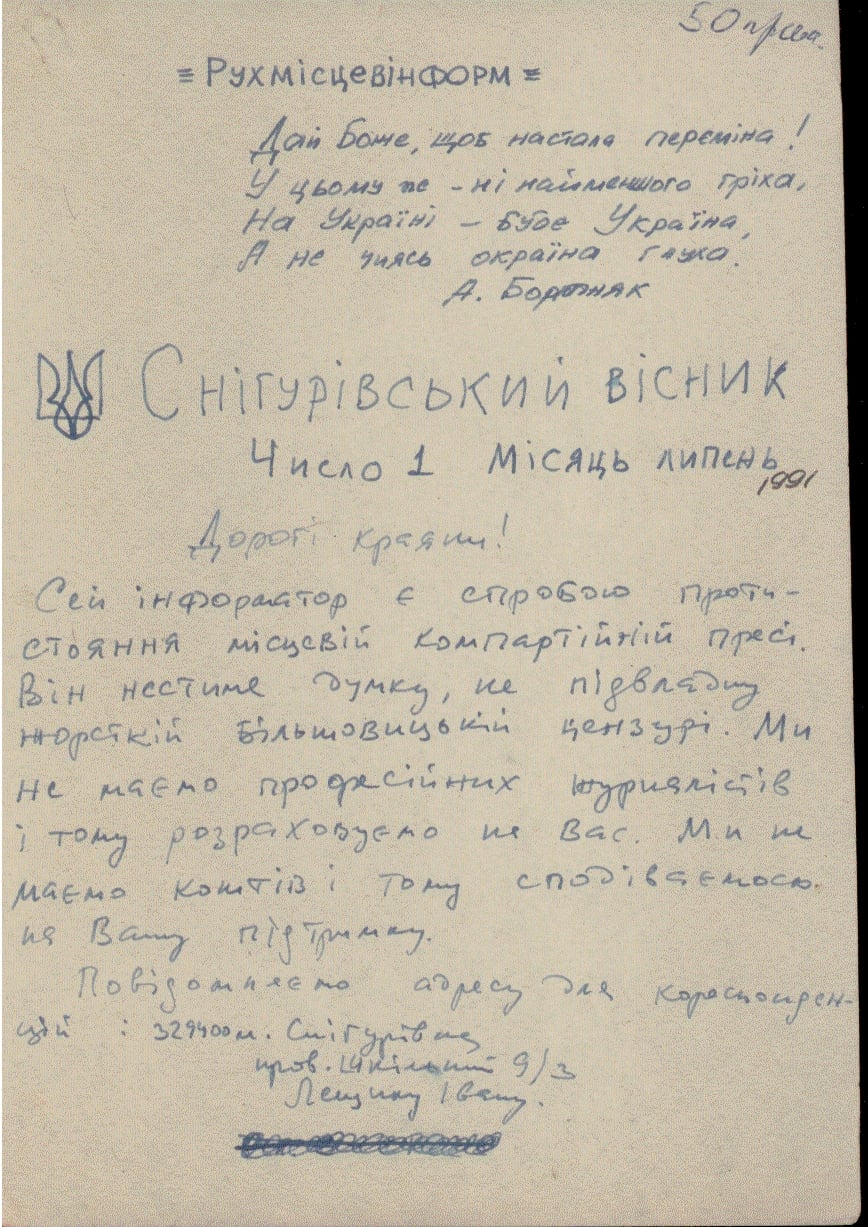 50 прим.
≡ Рухмісцевінформ ≡
Дай Боже, щоб настала переміна!
У цьому не - ні найменшого гріха,
На Україні - буде Україна,
А не чиясь окраїна глуха.
А. Бортняк
Снігурівський вісник
Число 1 Місяць липень
1991
Дорогі краяни!
Сей інформатор є спробою проти-
стояння місцевій компартійній пресі.
Він нестиме думку, не підвладну
жорсткій більшовицькій цензурі. Ми
не маємо професійних журналістів
і тому розраховуємо на Вас. Ми не
маємо коштів і тому сподіваємося
на Вашу підтримку.
Повідомляємо адресу для кореспонден-
цій : 329400 м. Снігурівка
пров. Шкільний 9/3
Лещику Івану.